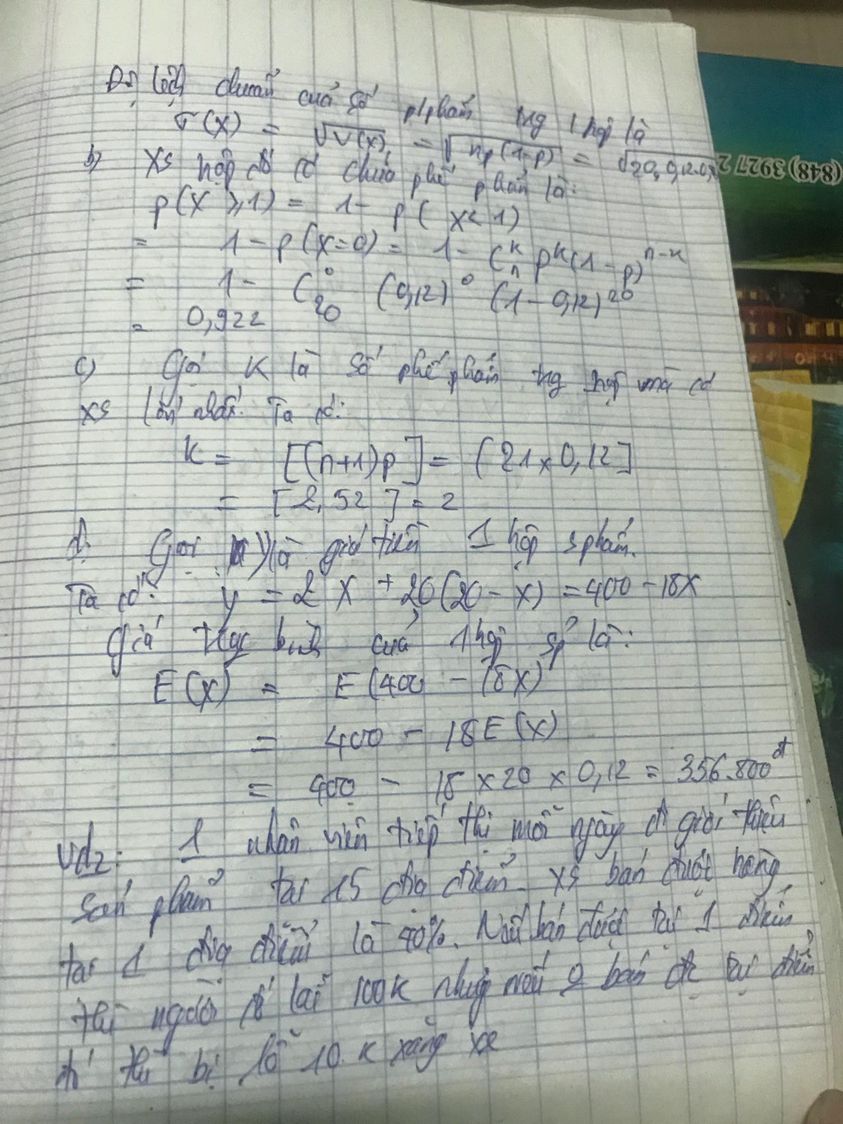 Độ lệch chuẩn của số pphẩm trg 1 hộp là
σ(X) = √V(X) = √np(1-p) = √20.0,12.0,
b) XS hộp đó có chứa phế phẩm là:
p(X ≥ 1) = 1 - p(X < 1)
= 1 - p(X=0) = 1 - C_n^k p^k (1-p)^{n-k}
= 1 - C_20^0 (0,12)^0 (1-0,12)^20
= 0,922
c) Gọi K là số phế phẩm trg hộp mà có
xs lớn nhất. Ta có:
K = [(n+1)p] = [21×0,12]
= [2,52] = 2
d. Gọi y là giá tiền 1 hộp sphẩm.
Ta có: y = 2X + 20(20-X) = 400-18X
Giá trị bình của 1 hộp sp là:
E(X) = E(400 - 18X)
= 400 - 18E(X)
= 400 - 18×20×0,12 = 356.800đ
Vd2: 1 nhân viên tiếp thị mỗi ngày đi giới thiệu
sản phẩm tại 15 địa điểm. XS bán được hàng
tại 1 địa điểm là 40%. Nếu bán được tại 1 điểm
thì người đó lãi 100K nhưng nếu k bán đc tại điểm
đó thì bị lỗ 10K xăng xe
(848) 3927 2